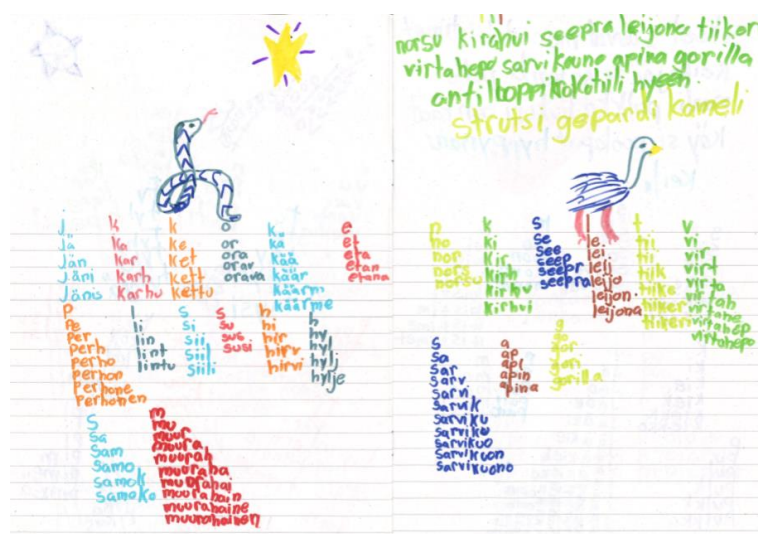 j
jä
jän
jäni
jänis
k
ka
kar
karh
karhu
k
ke
ket
kett
kettu
o
or
ora
orav
orava
kä
kä
kää
käär
käärm
käärme
e
et
eta
etan
etana
p
pe
per
perh
perho
perhon
perhone
perhonen
l
li
lin
lint
lintu
s
si
sii
siil
siili
s
su
sus
susi
h
hi
hir
hirv
hirvi
h
hy
hyl
hylj
hylje
s
sa
sam
sama
samak
samako
m
mu
muur
muura
muurah
muuraha
muurahai
muurahain
muurahaine
muurahainen
norsu kirahvi seepra leijona tiikeri
virtahepo sarvikuono apina gorilla
antilooppi krokotiili hyeen
strutsi gepardi kameli
n
no
nor
nors
norsu
k
ki
kir
kirh
kirhv
kirhvi
s
se
see
seep
seepr
seepra
l
le
lei
leij
leijo
leijon
leijona
t
ti
tii
tiik
tiike
tiiker
tiikeri
v
vi
vir
virt
virta
virtah
virtahe
virtahep
virtahepo
s
sa
sar
sarv
sarvi
sarvik
sarviku
sarviku
sarvikuo
sarvikuon
sarvikuono
a
ap
api
apin
apina
g
go
gor
gori
gorilla